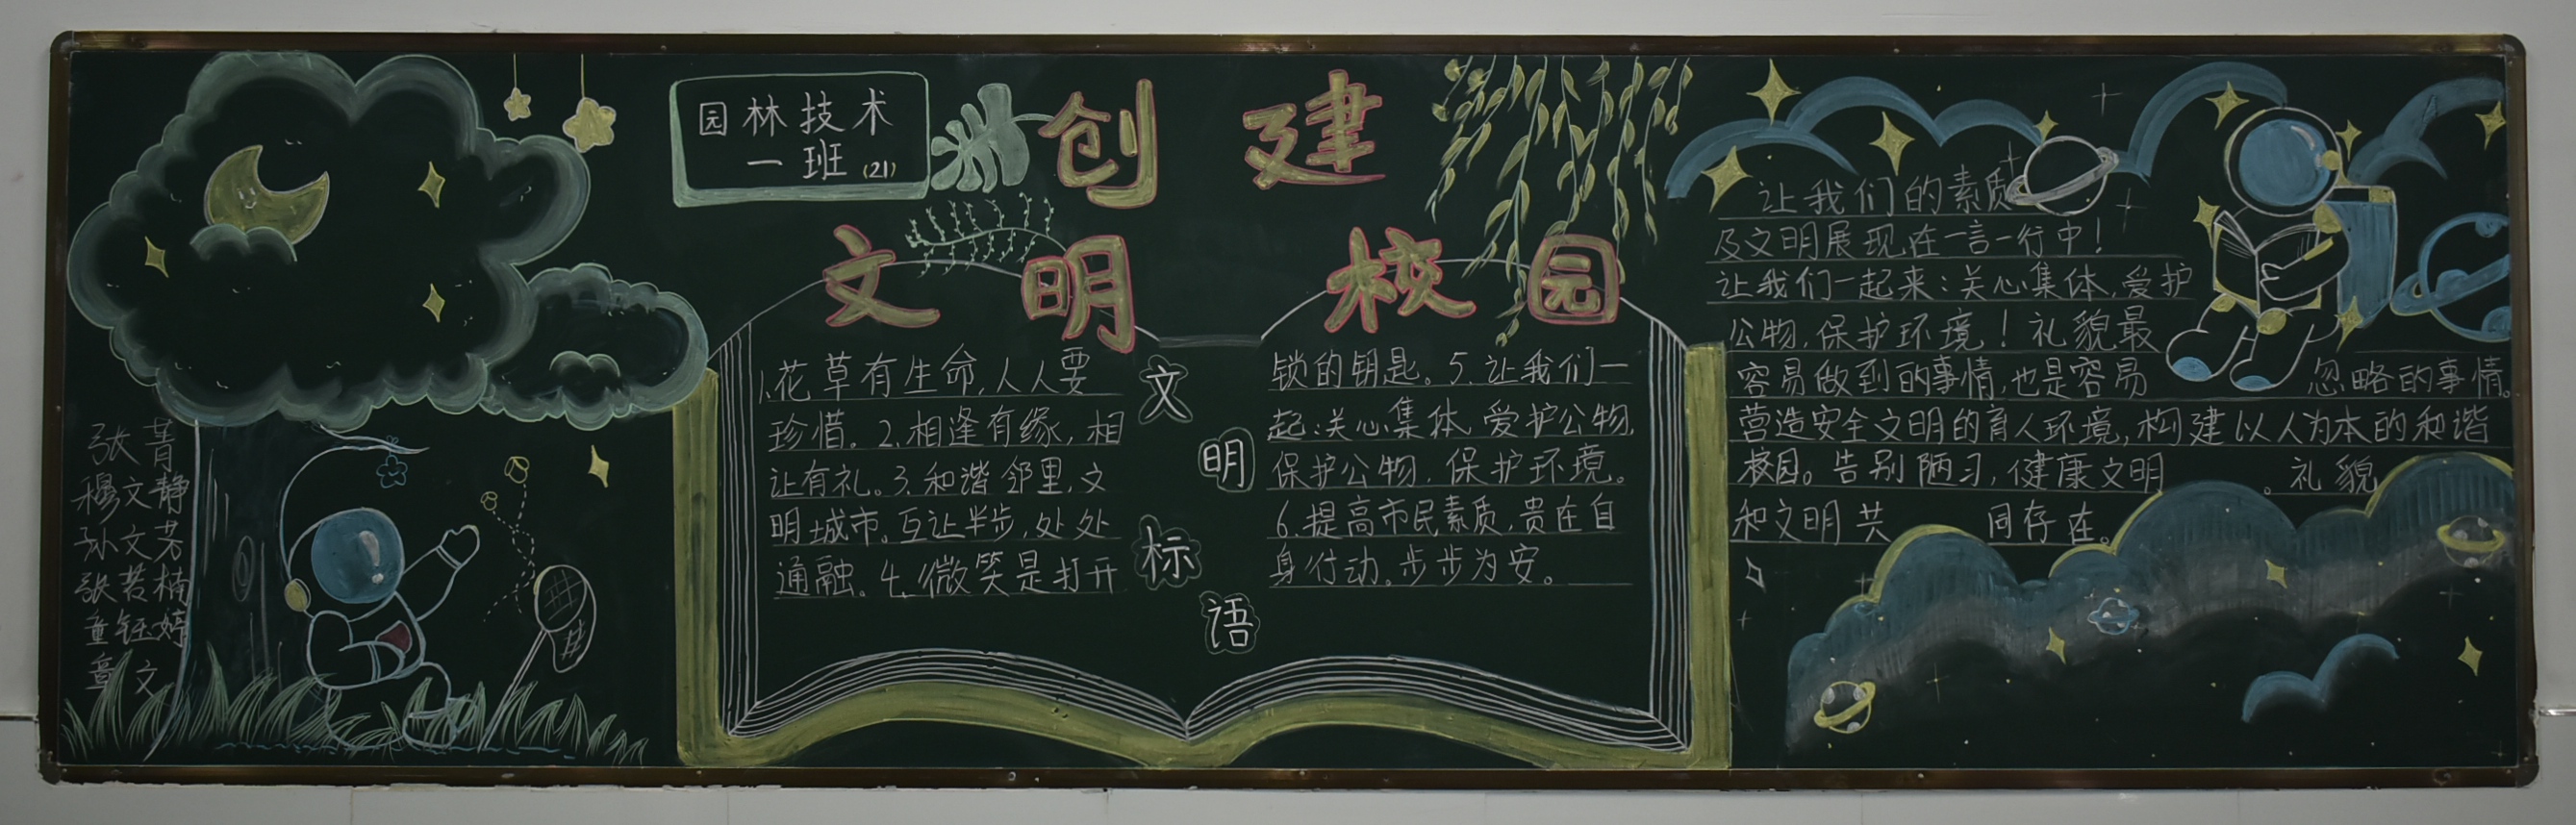 园林技术
一班(21)
创建
文明校园
1.花草有生命,人人要
珍惜。2.相逢有缘,相
让有礼。3.和谐邻里,文
明城市。互让半步,处处
通融。4.微笑是打开
文明标语
锁的钥匙。5.让我们一
起:关心集体,爱护公物,
保护公物,保护环境。
6.提高市民素质,贵在自
身行动。步步为安。
让我们的素质
及文明展现在一言一行中!
让我们一起来:关心集体,爱护
公物,保护环境!礼貌最
容易做到的事情,也是容易忽略的事情。
营造安全文明的育人环境,构建以人为本的和谐
校园。告别陋习,健康文明。礼貌
和文明共同存在。
张菁
穆文静
孙文芳
张若楠
童钰婷
章文